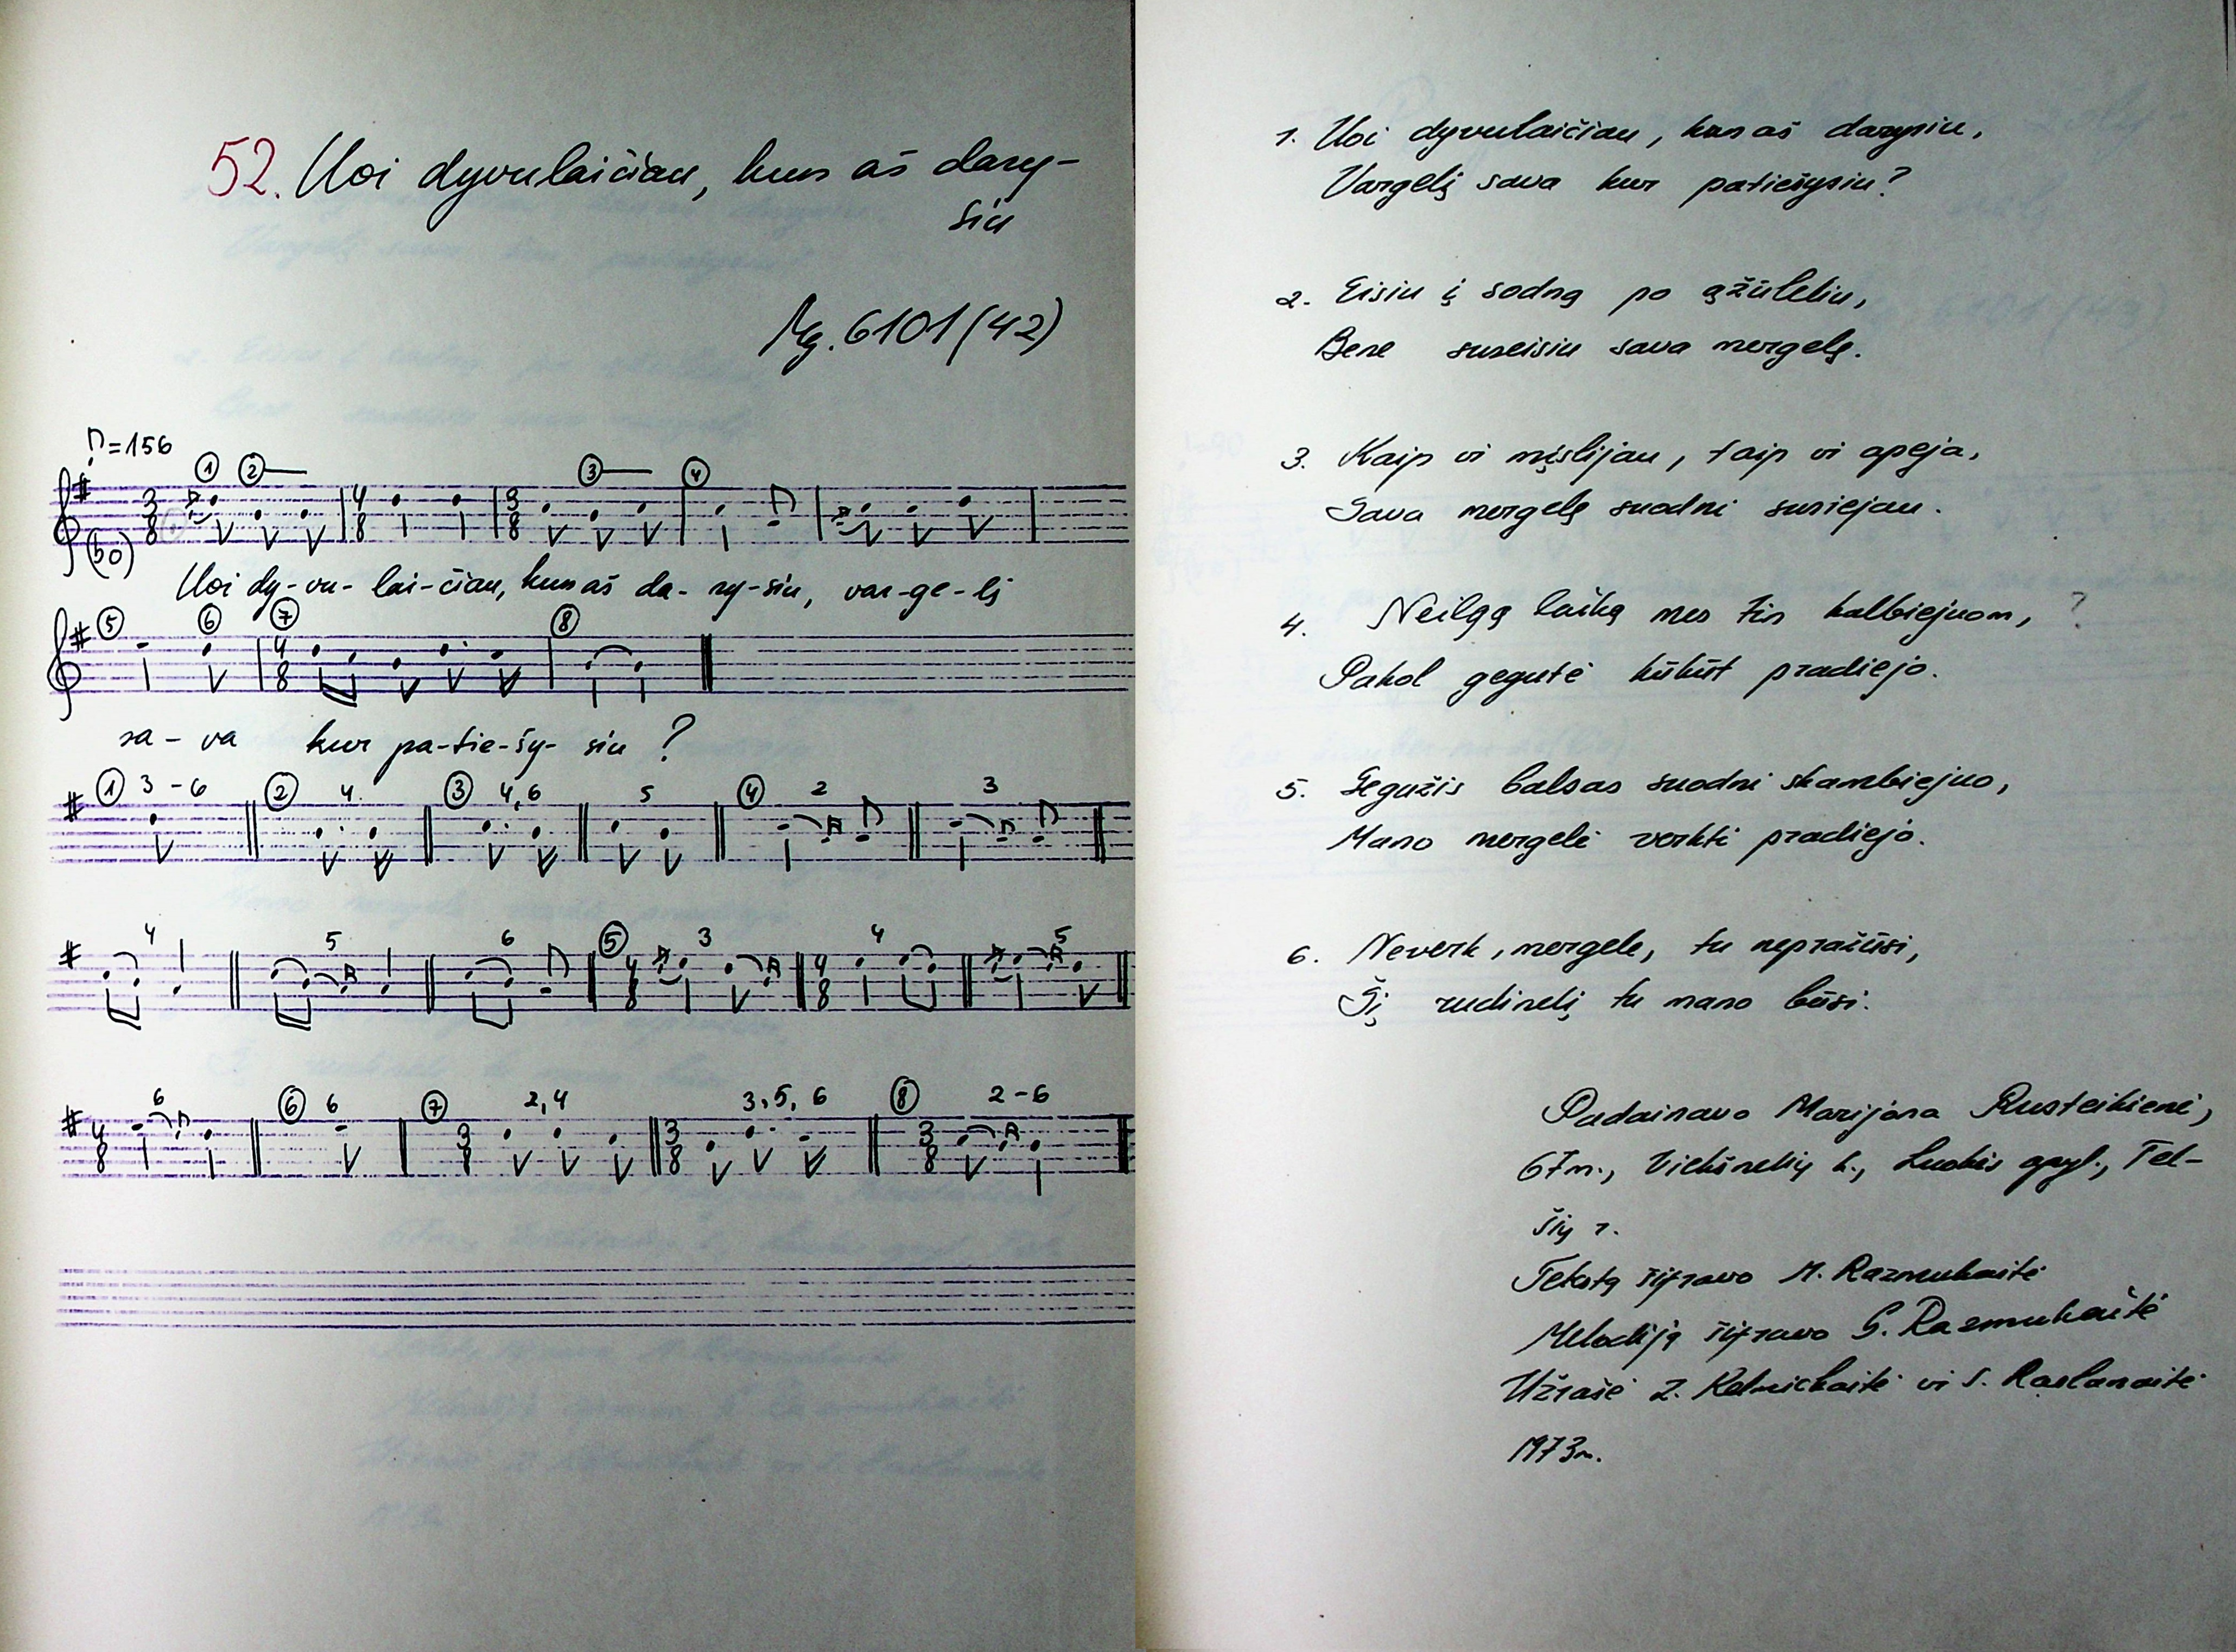 52. Uoi dyvulaičiau, kun aš dary-
siu
Mg. 6101 (42)
♪=156
① ② ③ ④
3/8 4/8 3/8
(bo)
Uoi dy-vu-lai-čiau, kun aš da-ry-siu, var-ge-lį
⑤ ⑥ ⑦ ⑧
4/8
sa-va kur pa-tie-šy-siu?
① 3-6 ② 4 ③ 4,6 5 ④ 2 3
4 5 6 ⑤ 3 4 5
4/8 4/8
6 ⑥ 6 ⑦ 2,4 3,5,6 ⑧ 2-6
4/8 3/8 3/8 3/8
1. Uoi dyvulaičiau, kun aš darysiu,
Vargelį sava kur patiešysiu?
2. Eisiu į sodną po ąžūleliu,
Bene sueisiu sava mergelę.
3. Kaip vi mįslijau, taip vi apeja,
Sava mergelę suodni suriejau.
4. Neilgą laiką mes tin kalbiejuom, ?
Pakol gegutė kūkūt pradiejo.
5. Gegužis balsas suodni skambiejuo,
Mano mergelė verkti pradiejo.
6. Neverk, mergele, tu nepražūsi,
Šį rudinelį tu mano būsi.
Padainavo Marijona Rusteikienė,
67m., Viekšnelių k., Luokės apyl., Tel-
šių r.
Tekstą šifravo M. Razmukaitė
Melodiją šifravo G. Razmukaitė
Užrašė Z. Kelmickaitė ir S. Raslanaitė
1973m.